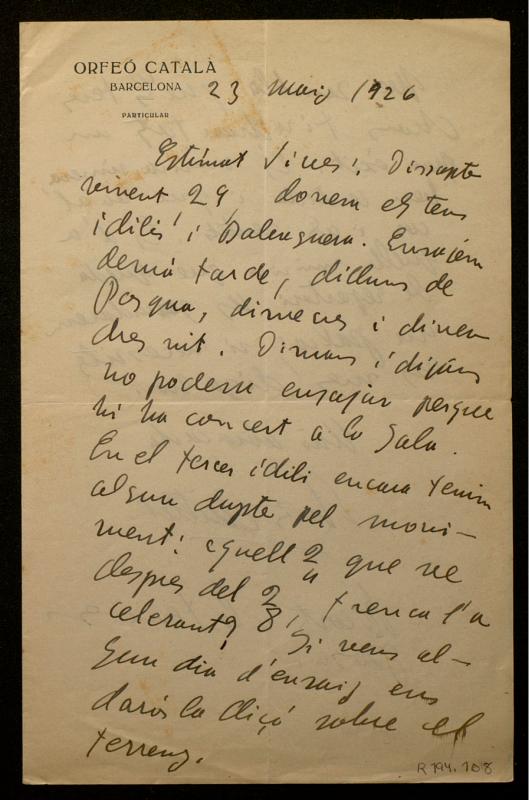 ORFEÓ CATALÀ
BARCELONA
PARTICULAR
23 Maig 1926
Estimat Vives: Dissapte
vinent 29, donem els teus
idilis i Balenguera. Ensajem
demà tarde, dilluns de
Pasqua, dimecres i diven-
dres nit. Dimars i dijous
no podem ensajar perque
hi ha concert a la Sala.
En el tercer idili encara tenim
algun dupte pel movi-
ment: aquell 2/4 que ve
despres del 2/8, trenca l'a
celerant?
Si vens al-
gun dia d'ensaig ens
daràs la lliçó sobre el
terreny.
R 194.108